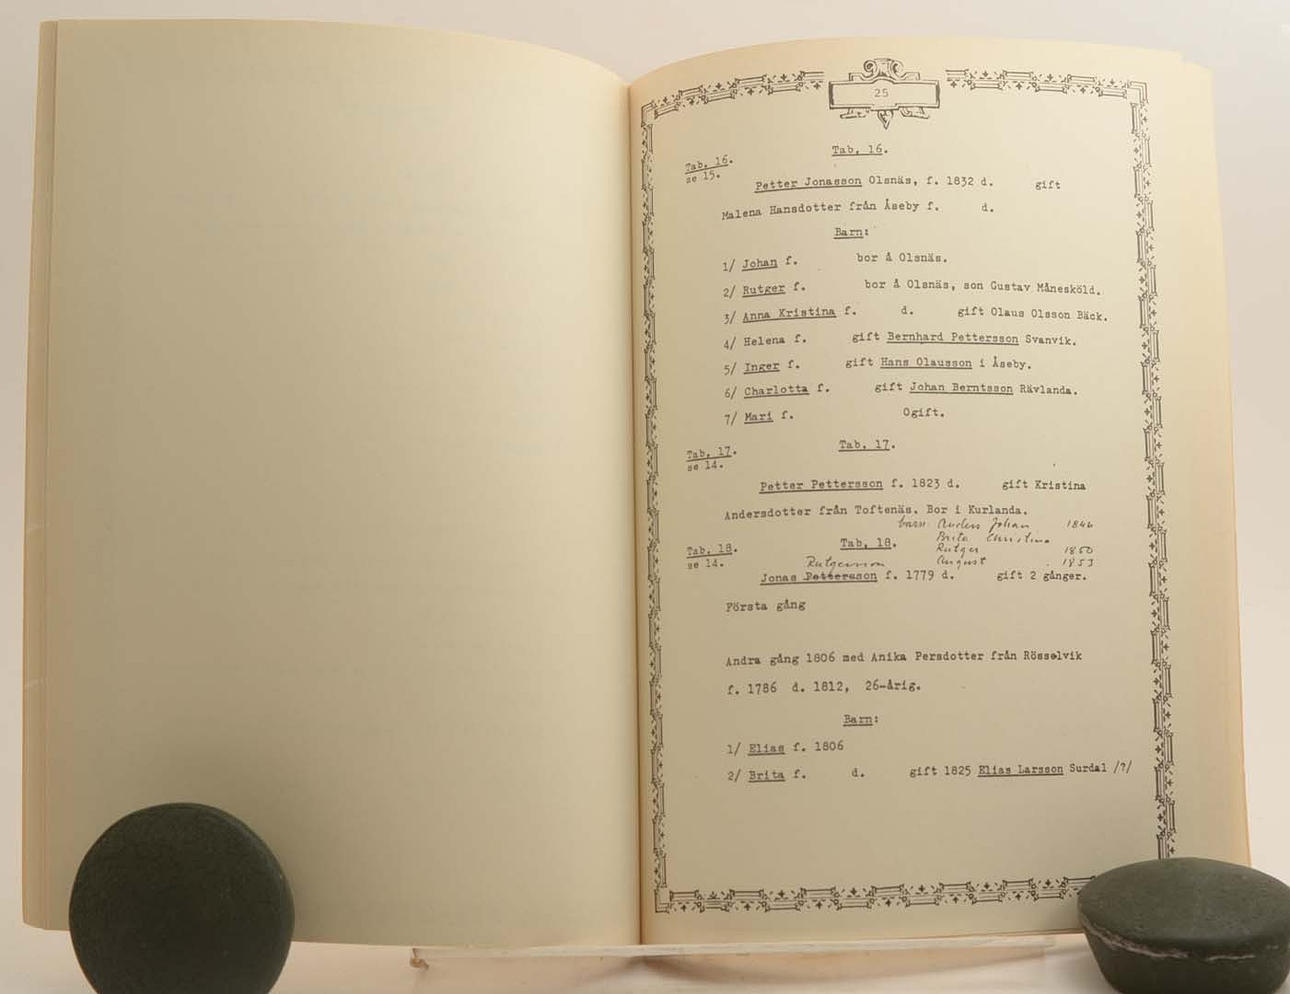 25
Tab. 16.
Tab. 16.
se 15.
Petter Jonasson Olsnäs, f. 1832 d. gift
Malena Hansdotter från Åseby f. d.
Barn:
1/ Johan f. bor å Olsnäs.
2/ Rutger f. bor å Olsnäs, son Gustav Månesköld.
3/ Anna Kristina f. d. gift Olaus Olsson Bäck.
4/ Helena f. gift Bernhard Pettersson Svanvik.
5/ Inger f. gift Hans Olausson i Åseby.
6/ Charlotta f. gift Johan Berntsson Rävlanda.
7/ Mari f. Ogift.
Tab. 17.
Tab. 17.
se 14.
Petter Pettersson f. 1823 d. gift Kristina
Andersdotter från Toftenäs. Bor i Kurlanda.
barn: Anders Johan 1846
Brita Christina
Tab. 18.
Tab. 18.
se 14.
Rutger 1850
August 1853
Rutgersson
Jonas Pettersson f. 1779 d. gift 2 gånger.
Första gång
Andra gång 1806 med Anika Persdotter från Rösselvik
f. 1786 d. 1812, 26-årig.
Barn:
1/ Elias f. 1806
2/ Brita f. d. gift 1825 Elias Larsson Surdal /?/